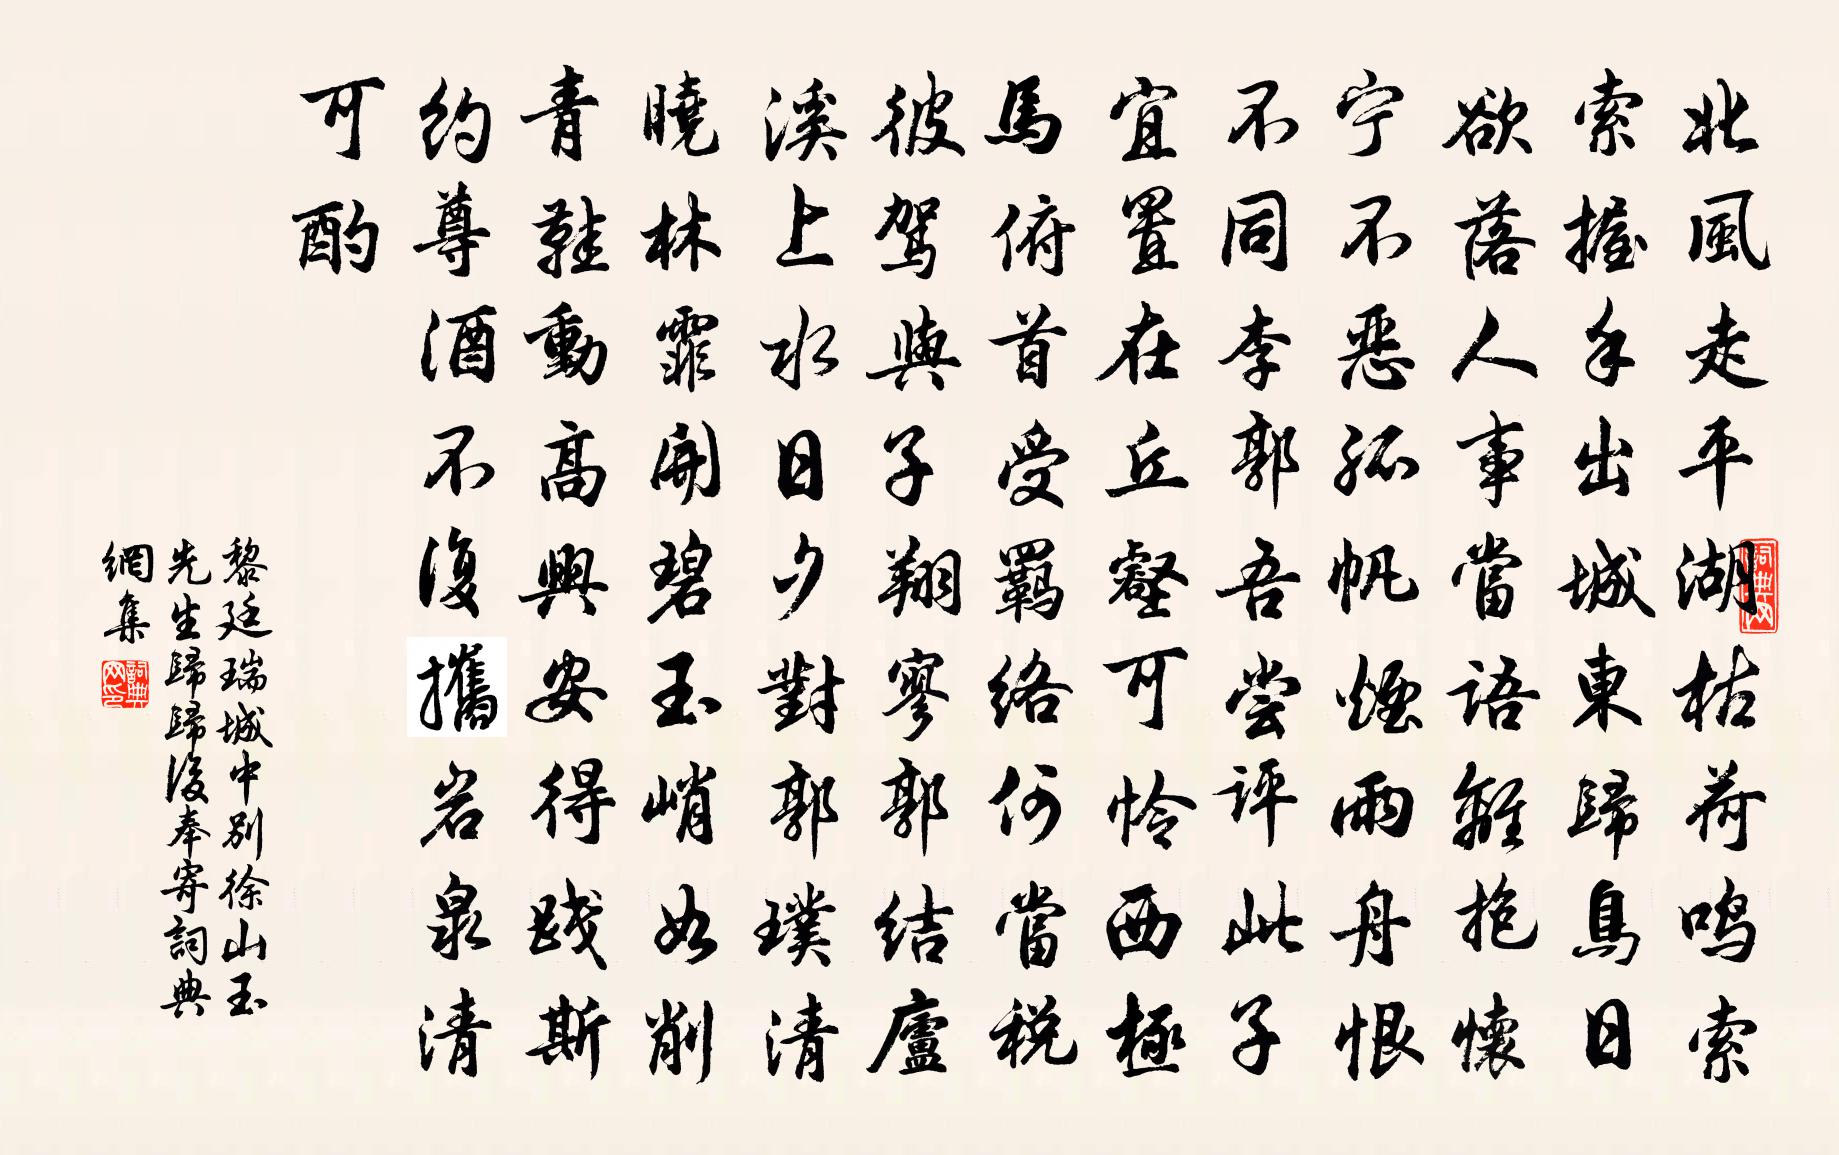 北風走平湖枯荷鳴索
索握手出城東歸鳥日
欲落人事當語離抱懷
宁不惡孤帆煙雨舟恨
不同李郭吾嘗評此子
宜置在丘壑可憐西極
馬俯首受羈絡何當税
彼駕與子翔寥郭結廬
溪上水日夕對郭璞清
曉林霏開碧玉峭如削
青鞋動高興安得踐斯
約尊酒不復攜岩泉清
可酌
黎廷瑞城中別徐山玉
先生歸歸後奉寄詞典
網集